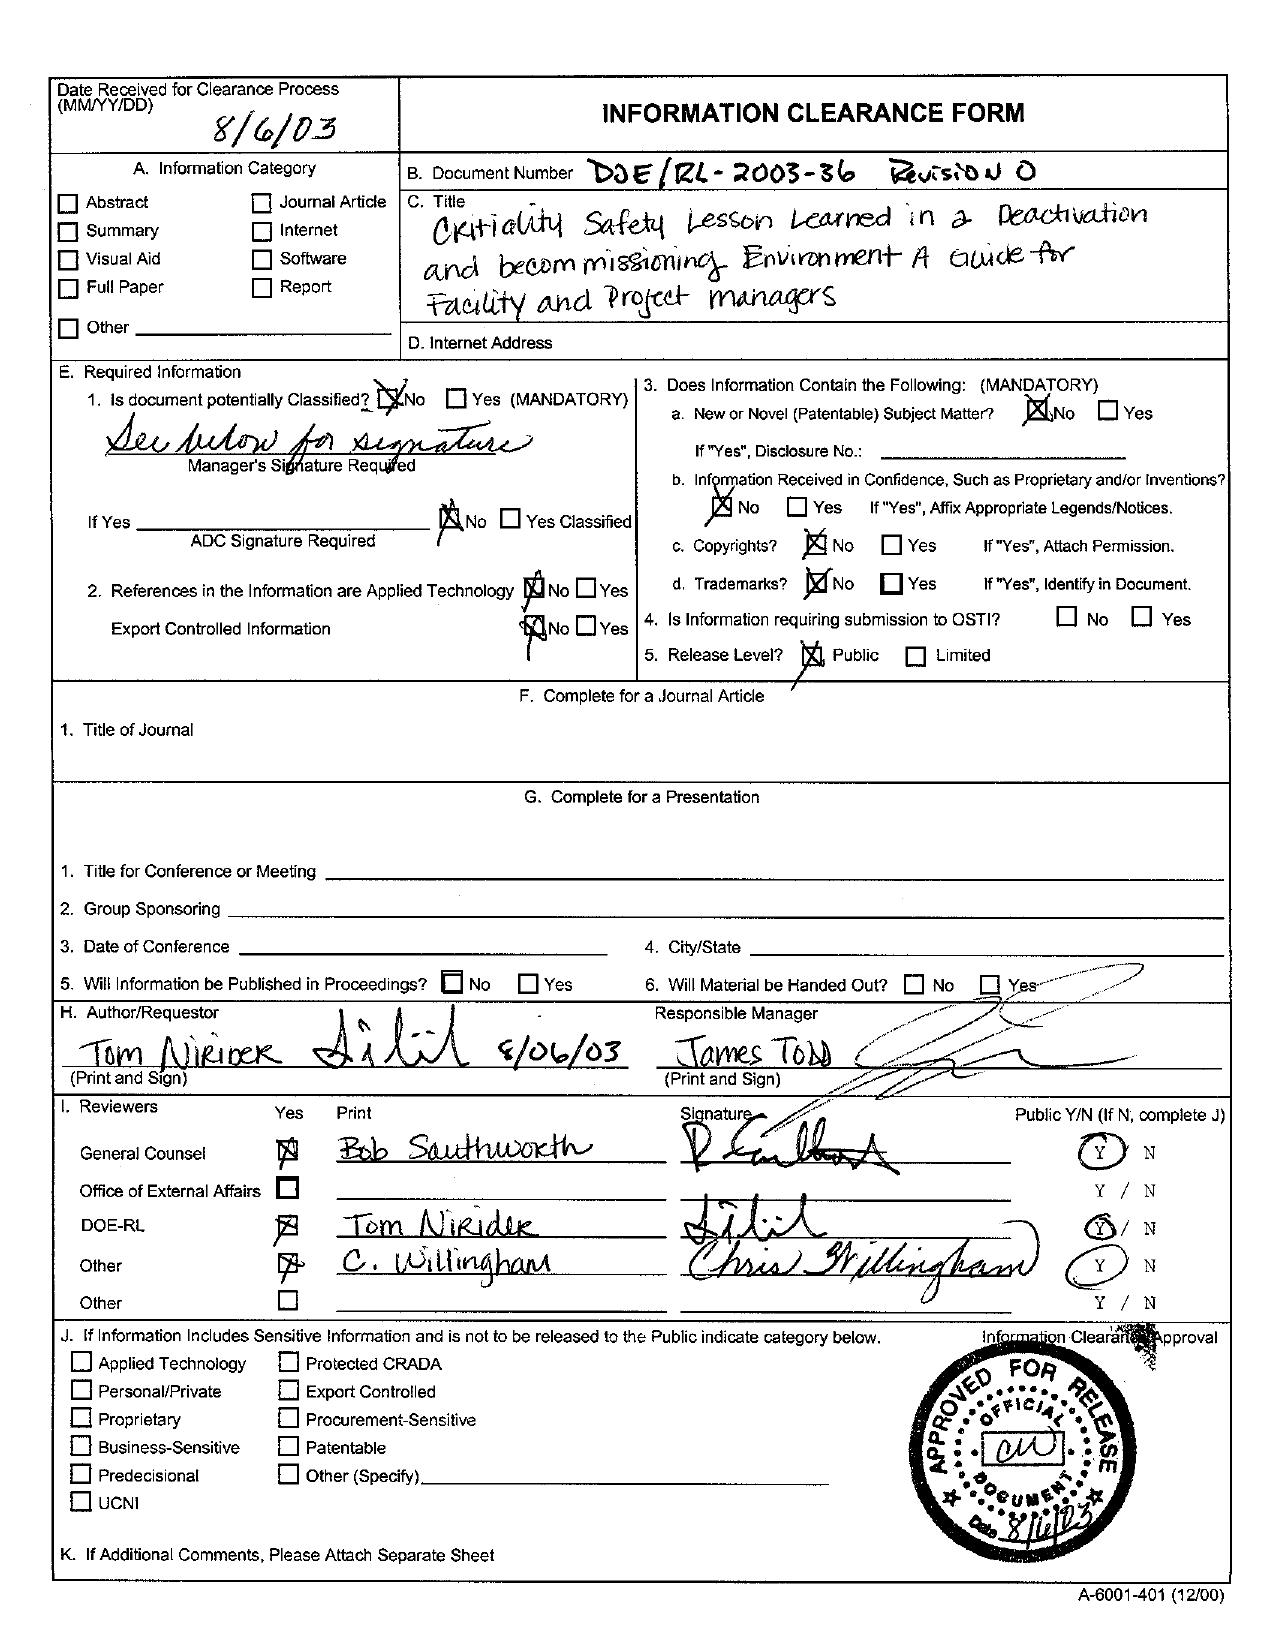 Date Received for Clearance Process
(MM/YY/DD)
8/6/03
INFORMATION CLEARANCE FORM
A. Information Category
Abstract
Journal Article
Summary
Internet
Visual Aid
Software
Full Paper
Report
Other
B. Document Number DOE/RL-2003-36 Revision 0
C. Title
Critiality Safety Lesson Learned in a Deactivation
and Decommissioning Environment A Guide for
Facility and Project managers
D. Internet Address
E. Required Information
1. Is document potentially Classified? No Yes (MANDATORY)
See below for signature
Manager's Signature Required
If Yes No Yes Classified
ADC Signature Required
2. References in the Information are Applied Technology No Yes
Export Controlled Information No Yes
3. Does Information Contain the Following: (MANDATORY)
a. New or Novel (Patentable) Subject Matter? No Yes
If "Yes", Disclosure No.:
b. Information Received in Confidence, Such as Proprietary and/or Inventions?
No Yes If "Yes", Affix Appropriate Legends/Notices.
c. Copyrights? No Yes If "Yes", Attach Permission.
d. Trademarks? No Yes If "Yes", Identify in Document.
4. Is Information requiring submission to OSTI? No Yes
5. Release Level? Public Limited
F. Complete for a Journal Article
1. Title of Journal
G. Complete for a Presentation
1. Title for Conference or Meeting
2. Group Sponsoring
3. Date of Conference
4. City/State
5. Will Information be Published in Proceedings? No Yes
6. Will Material be Handed Out? No Yes
H. Author/Requestor
Tom Nirider 8/06/03
(Print and Sign)
Responsible Manager
James Todd
(Print and Sign)
I. Reviewers Yes Print Signature Public Y/N (If N, complete J)
General Counsel Bob Southworth Y N
Office of External Affairs Y / N
DOE-RL Tom Nirider Y / N
Other C. Willingham Chris Willingham Y N
Other Y / N
J. If Information Includes Sensitive Information and is not to be released to the Public indicate category below.
Applied Technology Protected CRADA
Personal/Private Export Controlled
Proprietary Procurement-Sensitive
Business-Sensitive Patentable
Predecisional Other (Specify)
UCNI
Information Clearance Approval
APPROVED FOR RELEASE
OFFICIAL
CW
DOCUMENT
Date 8/6/03
K. If Additional Comments, Please Attach Separate Sheet
A-6001-401 (12/00)